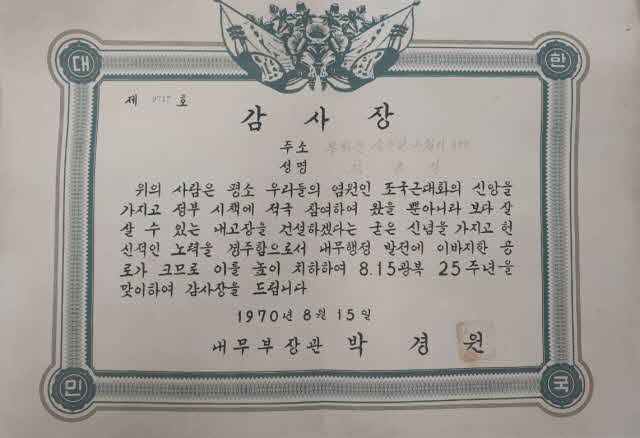 대 한
제 호
감 사 장
주소
성명
위의 사람은 평소 우리들의 염원인 조국근대화의 신앙을
가지고 정부 시책에 적극 참여하여 왔을 뿐아니라 보다 잘
살 수 있는 내고장을 건설하겠다는 굳은 신념을 가지고 헌
신적인 노력을 경주함으로서 내무행정 발전에 이바지한 공
로가 크므로 이를 높이 치하하여 8.15광복 25주년을
맞이하여 감사장을 드립니다
1970년 8월 15일
내무부장관 박 경 원
민 국